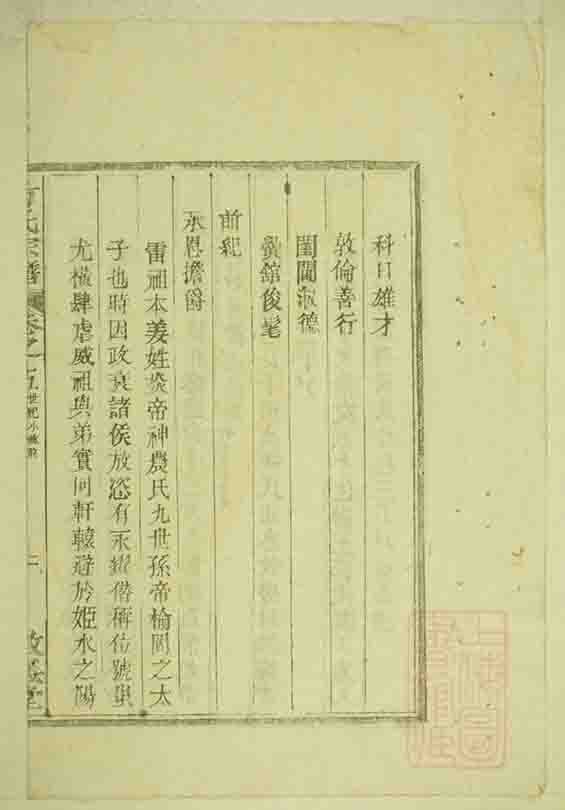 科目雄才
敦倫善行
閨閫淑德
黌舘俊髦
前紀
承恩擔爵
雷祖本姜姓炎帝神農氏九世孫帝榆罔之太
子也時因政衰諸侯放恣有永曜僭稱位號蚩
尤橫肆虐威祖與弟實同軒轅避於姬水之陽
氏宗譜 卷之 世紀小